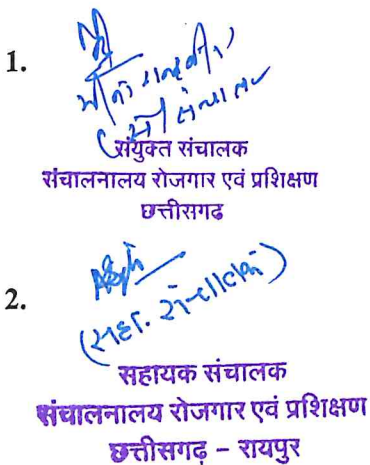 1.
संयुक्त संचालक
संचालनालय रोजगार एवं प्रशिक्षण
छत्तीसगढ
2.
(सहा. संचालक)
सहायक संचालक
संचालनालय रोजगार एवं प्रशिक्षण
छत्तीसगढ़ – रायपुर